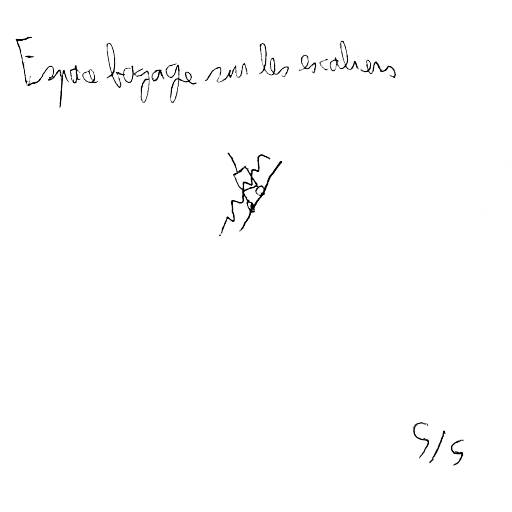 Espace bagage sur les escaliers
5/5